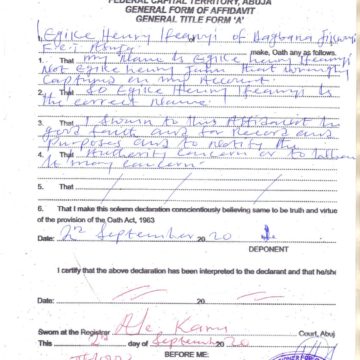 FEDERAL CAPITAL TERRITORY, ABUJA
GENERAL FORM OF AFFIDAVIT
GENERAL TITLE FORM 'A'
I Egike Henry Ifeanyi of Dagbana Jikwoyi
F.C.T Abuja make, Oath any as follows.
1. That my Name is Egike henry Ifeanyi
Not Egike henry John that wrongly
Captured on my Account
2. That So Egike Ifeanyi Henry is
the correct Name
3. That I Sworn to this Affidavit in
good faith and for Record and
purposes and to Notify the
4. That Authority Concern or to whom
it may Concern
5. That
6. That I make this solemn declaration conscientiously believing same to be truth and virtue
of the provision of the Oath Act, 1963
Date: 2nd September 2020
DEPONENT
I certify that the above declaration has been interpreted to the declarant and that he/she
Date:
Sworn at the Registrar Court, Abuj
This 2nd day of September 2020
BEFORE ME: